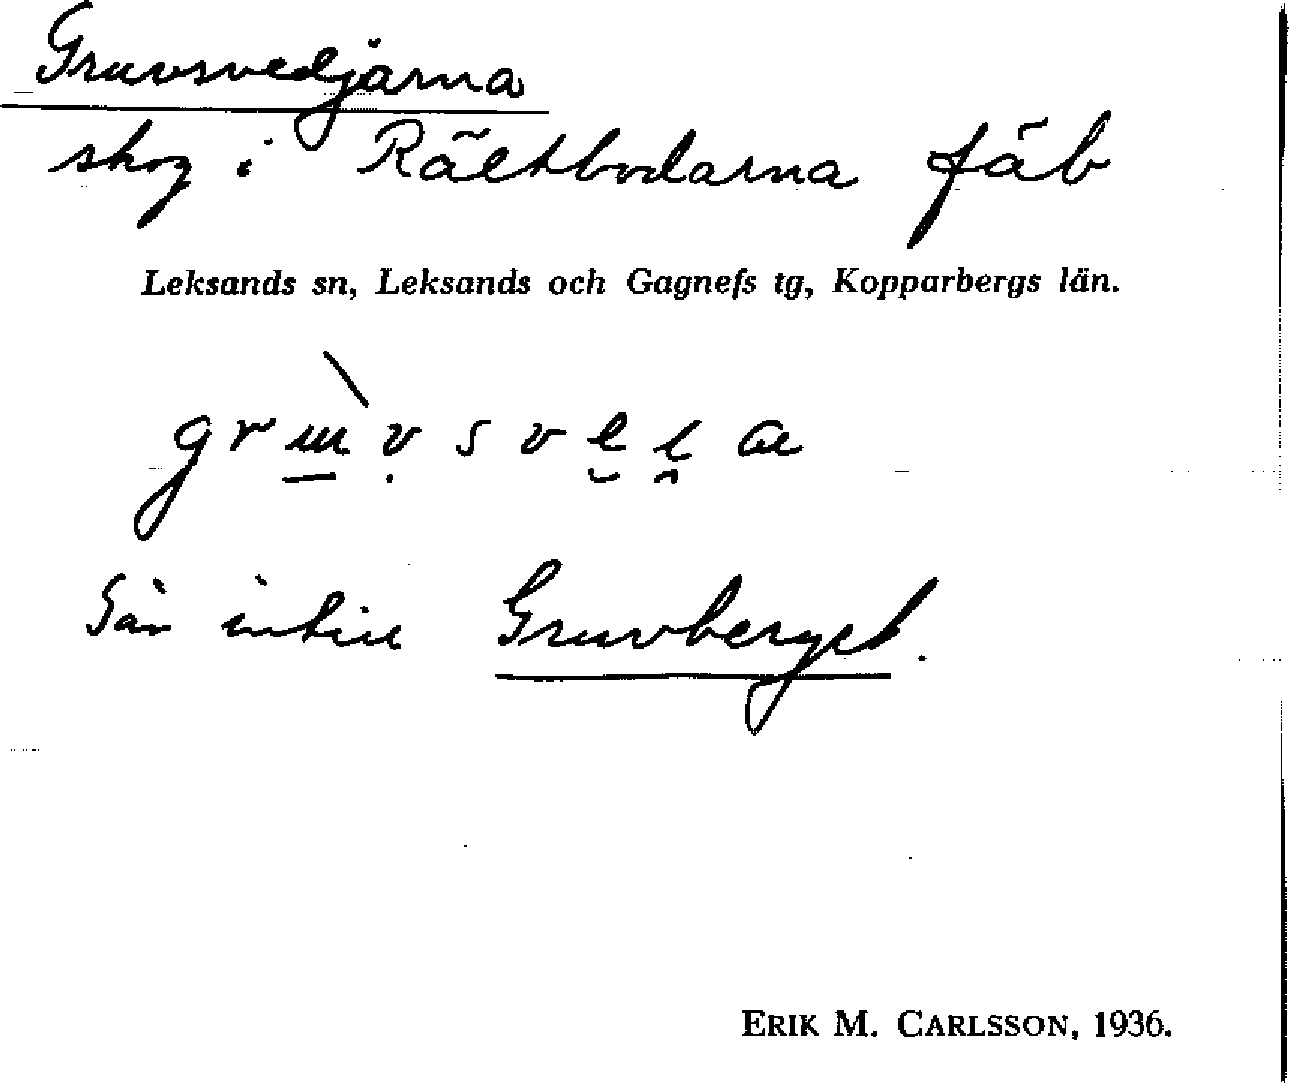 Gruvsvedjärna
skog i Rältbodarna fäb
Leksands sn, Leksands och Gagnefs tg, Kopparbergs län.
intill Gruvberget.
ERIK M. CARLSSON, 1936.